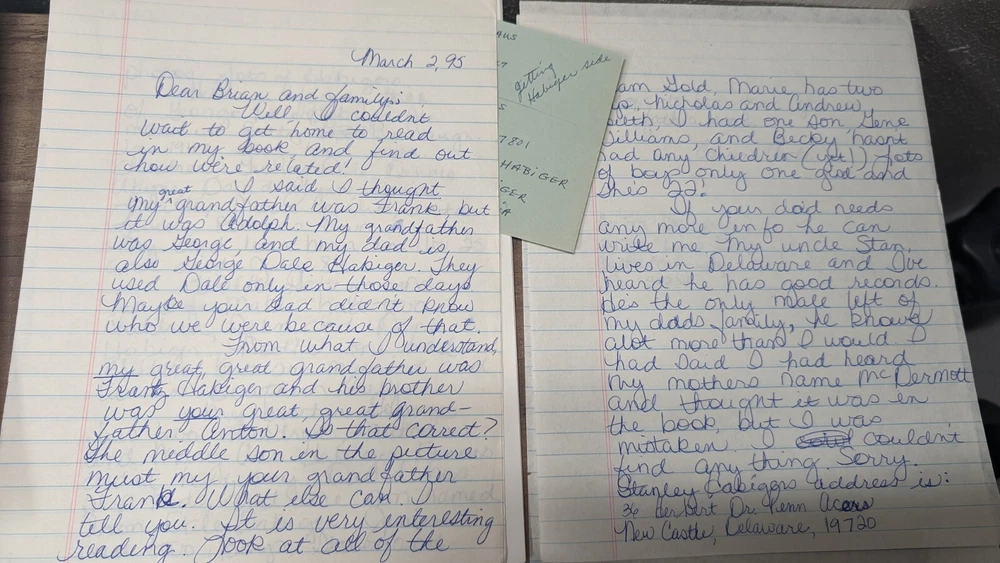 March 2, 95
Dear Brian and family;
Well, I couldn't
wait to get home to read
in my book and find out
how we're related!
I said I thought
my great grandfather was Frank, but
it was Adolph. My grandfather
was George and my dad is
also George Dale Habiger. They
used Dale only in those days
Maybe your dad didn't know
who we were because of that.
From what I understand,
my great, great grandfather was
Frank Habiger and his brother
was your great great grand-
father Anton. Is that correct?
The meddle son in the picture
must my your grandfather
Frank. What else can I
tell you. It is very interesting
reading. Look at all of the
aus
getting
Habiger side
7801
HABIGER
GER
am Gold, Marie has two
Nicholas and Andrew,
I had one son, Gene
Williams, and Becky hasn't
had any Chiedren (yet!) Lots
of boys only one and
She's 22!
If your dad needs
any more info he can
write me. My uncle Stan,
lives in Delaware and I've
heard he has good records.
Hes the only male left of
my dads family, he knows
alot more than I would I
had said I had heard
my mothers name McDermott
and thought it was in
the book, but I was
mistaken. I couldn't
find anything. Sorry.
Stanley Habigers address is:
36 Herbert Dr. Penn Acers
New Castle, Delaware, 19720